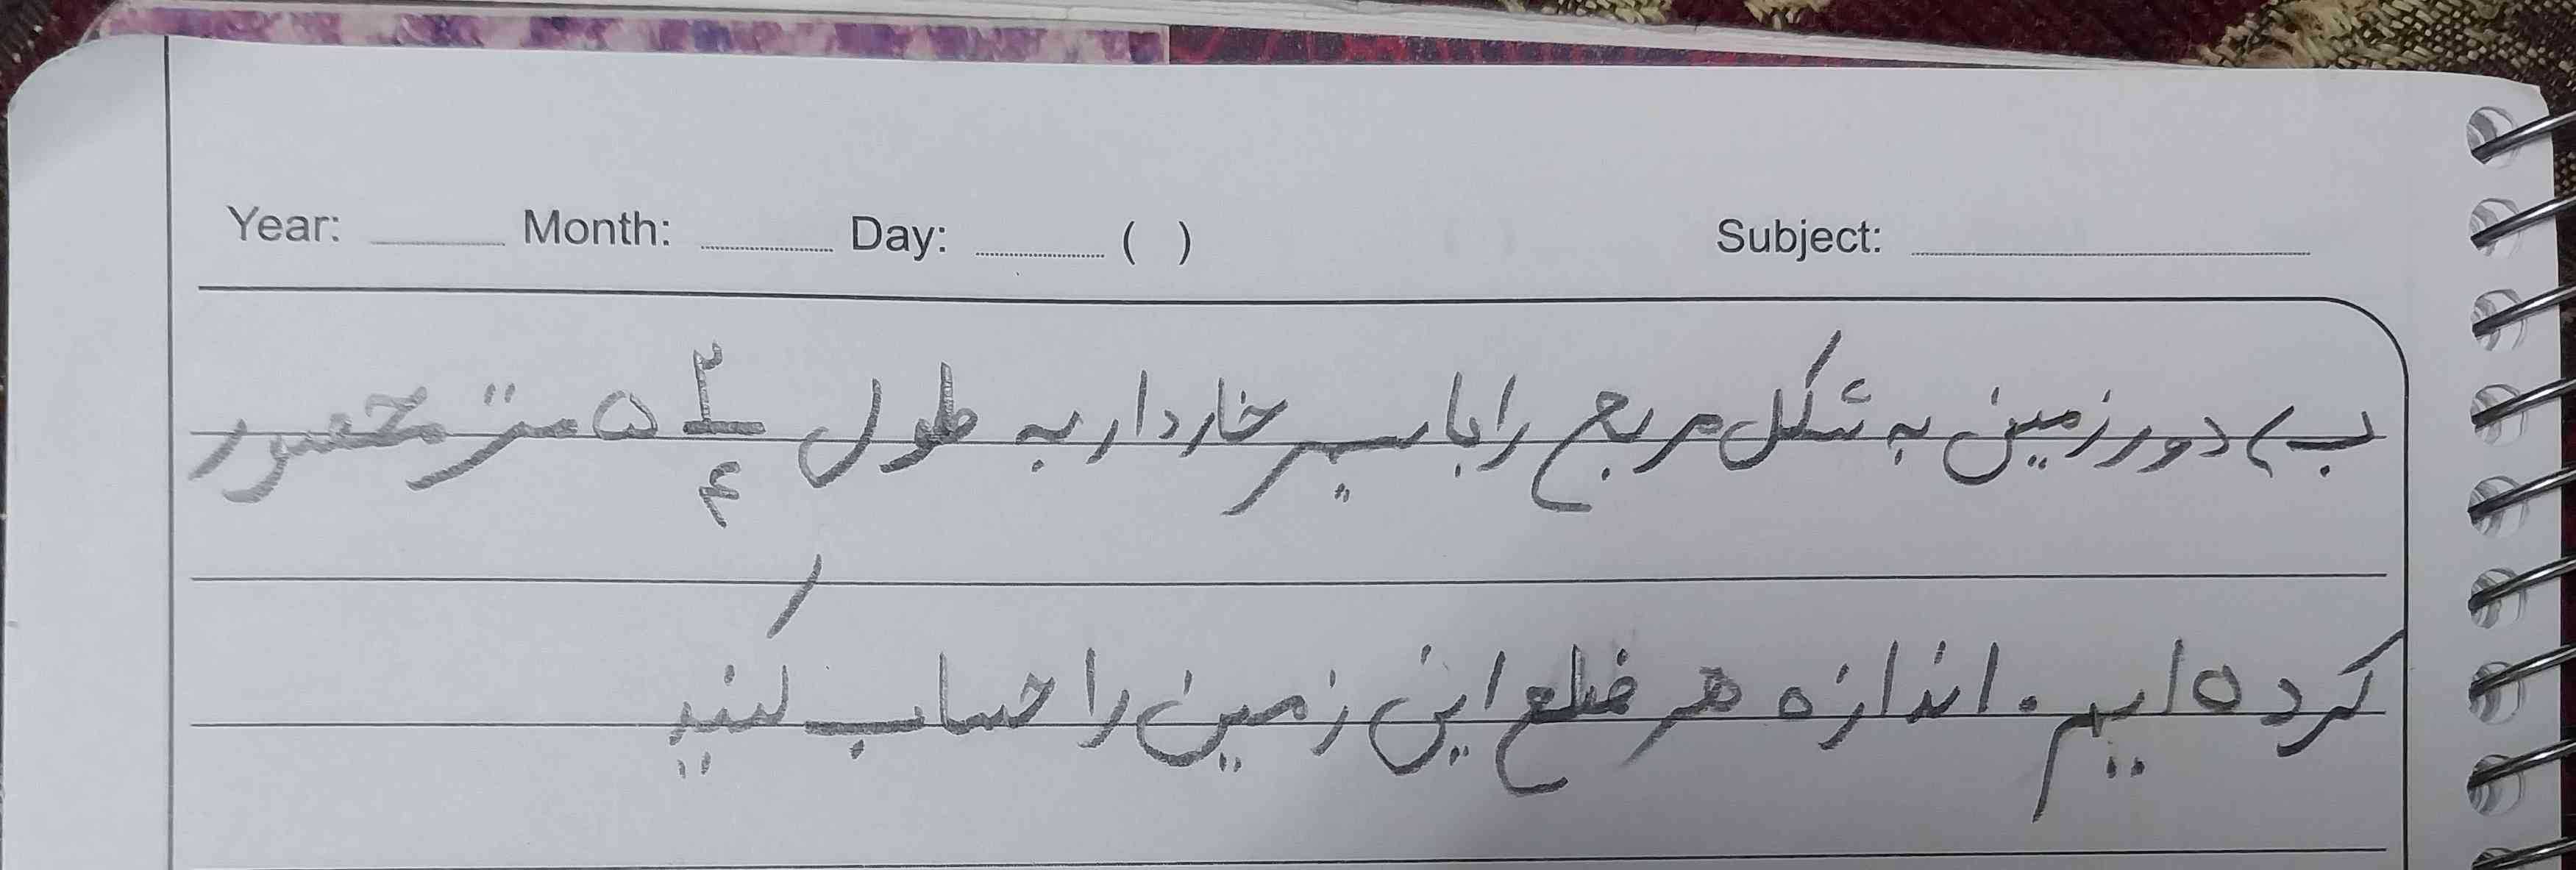 Year: Month: Day: ( ) Subject:
ب) دور زمین به شکل مربع را با سیم خاردار به طول ۵ ۳/۴ متر محصور
کرده ایم. اندازه هر ضلع این زمین را حساب کنید